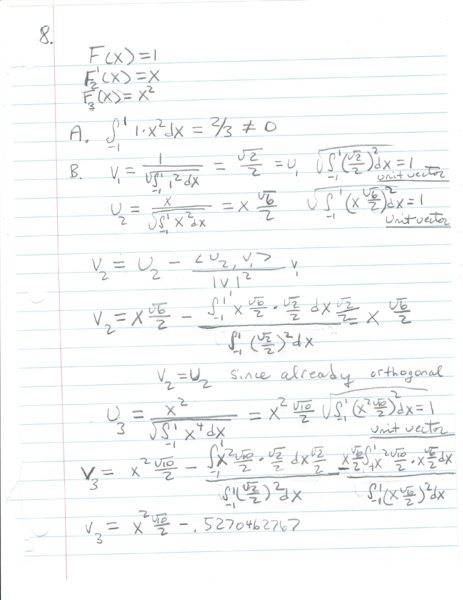 8.
F(x)=1
F₂(x)=x
F₃(x)=x²
A. ∫₋₁¹ 1·x²dx = 2/3 ≠ 0
B. V₁ = 1/√(∫₋₁¹ 1²dx) = √2/2 = U₁ √(∫₋₁¹(√2/2)²dx) = 1 unit vector
U₂ = x/√(∫₋₁¹ x²dx) = x √6/2 √(∫₋₁¹(x √6/2)²dx) = 1 unit vector
V₂ = U₂ - <U₂, V₁>/|V|² V₁
V₂ = x √6/2 - ∫₋₁¹ x √6/2 · √2/2 dx √2/2 / ∫₋₁¹(√2/2)²dx = x √6/2
V₂ = U₂ since already orthogonal
U₃ = x²/√(∫₋₁¹ x⁴dx) = x² √10/2 √(∫₋₁¹(x² √10/2)²dx) = 1 unit vector
V₃ = x² √10/2 - ∫₋₁¹ x² √10/2 · √2/2 dx √2/2 / ∫₋₁¹(√2/2)²dx - x √6/2 ∫₋₁¹ x² √10/2 · x √6/2 dx / ∫₋₁¹(x √6/2)²dx
V₃ = x² √10/2 - .5270462767